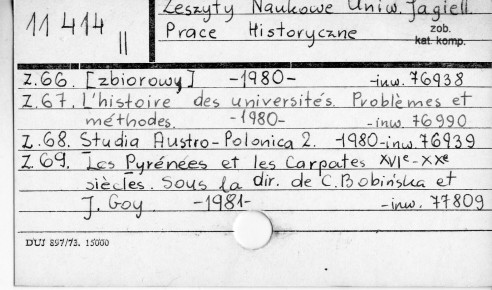 Zeszyty Naukowe Uniw. Jagiell.
11 414 II
Prace Historyczne
zob. kat. komp.
Z. 66. [zbiorowy] -1980- -inw. 76938
Z. 67. L'histoire des universités. Problèmes et
méthodes. -1980- -inw. 76990
Z. 68. Studia Austro-Polonica 2. -1980-inw. 76939
Z. 69. Les Pyrénées et les Carpates XVIe-XXe
siècles. Sous la dir. de C. Bobińska et
J. Goy -1981- -inw. 77809
DUJ 897/73. 15000